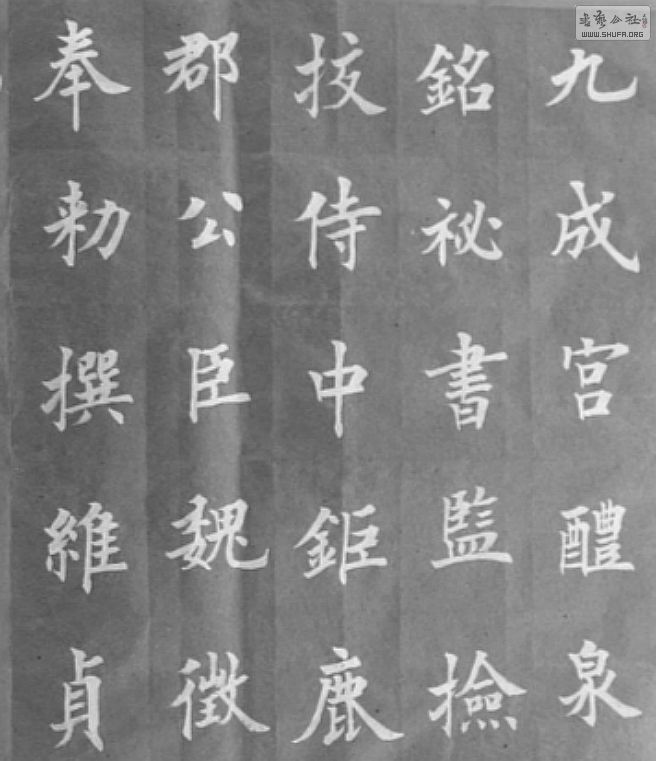 九成宮醴泉
銘祕書監撿
挍侍中鉅鹿
郡公臣魏徵
奉勑撰維貞
书艺公社
WWW.SHUFA.ORG